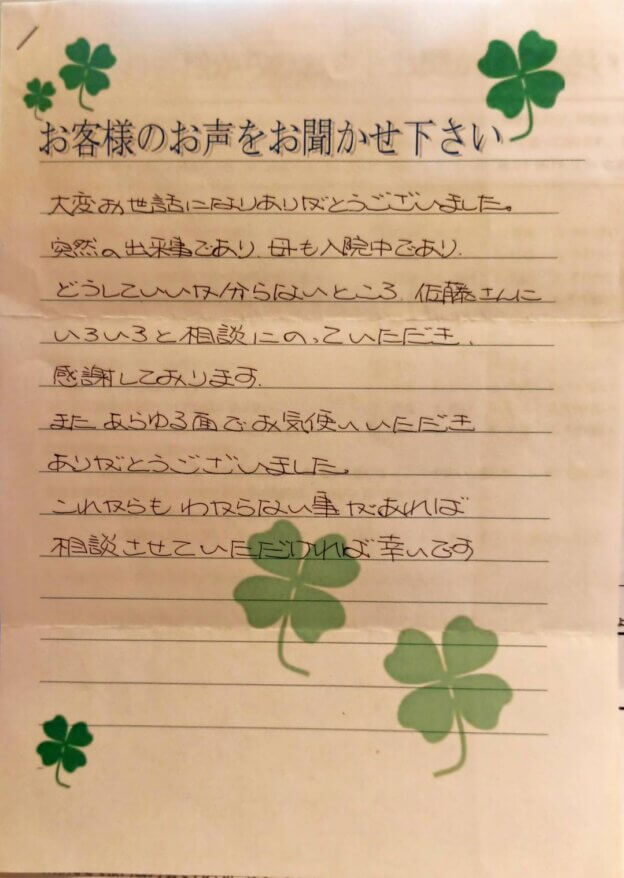 お客様のお声をお聞かせ下さい
大変お世話になりありがとうございました。
突然の出来事であり、母も入院中であり、
どうしていいか分からないところ、佐藤さんに
いろいろと相談にのっていただき、
感謝しております。
また あらゆる面でお気使いいただき
ありがとうございました。
これからも わからない事があれば
相談させていただければ幸いです